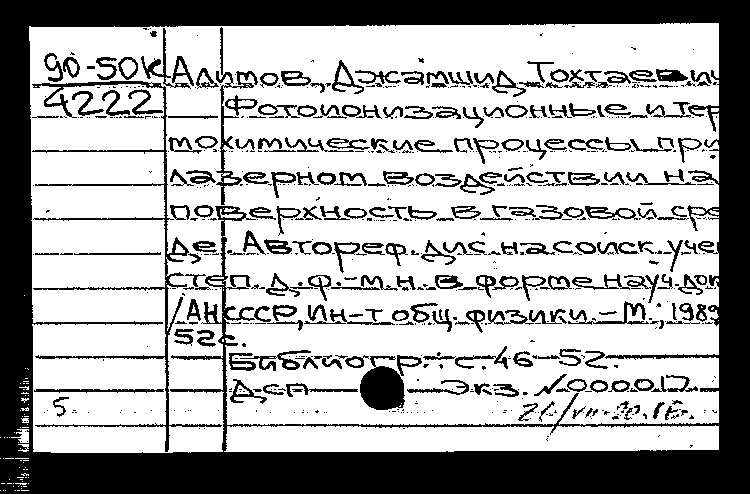 90-50к Алимов, Джамшид Тохтаевич
4222 Фотоионизационные и тер
мохимические процессы при
лазерном воздействии на
поверхность в газовой сре
де. Автореф. дис. на соиск. учен
степ. д.ф.-м.н. в форме науч. док
/АН СССР, Ин-т общ. физики. – М., 1989
52с.
Библиогр.: с. 46-52.
ДСП Экз. №000017
5